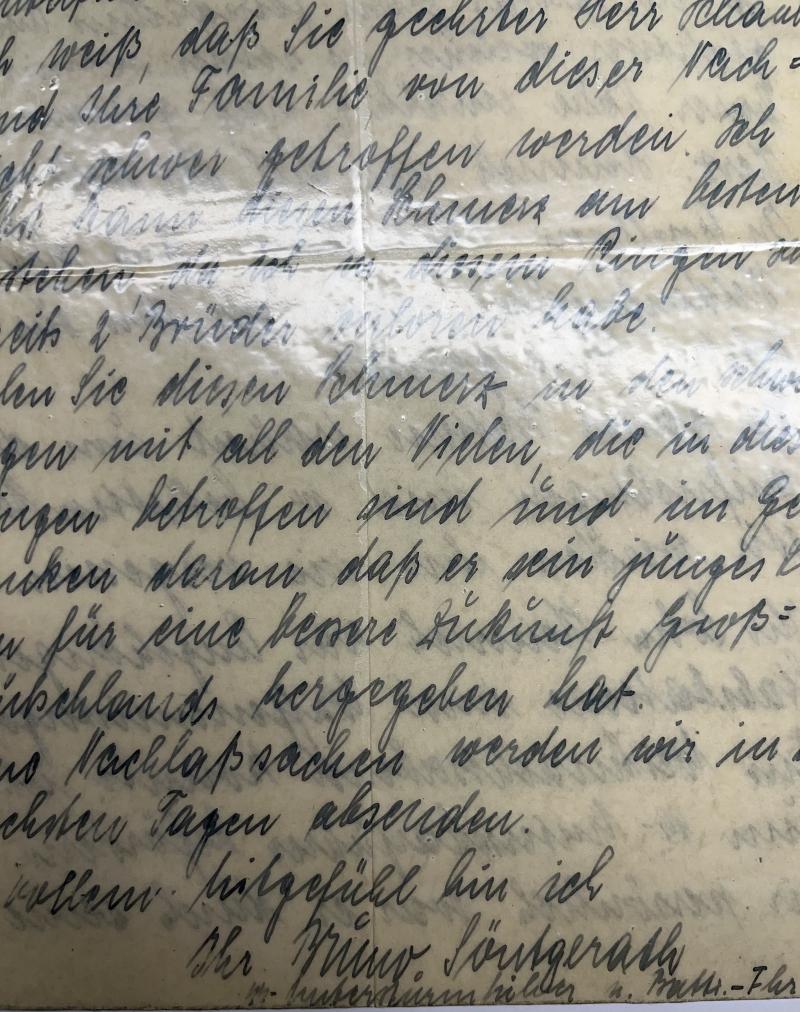 h weiß, daß Sie geehrter Herr Schau
nd Ihre Familie von dieser Nach=
cht schwer getroffen werden. Ich
kann diesen Schmerz am besten
stehen, da ich in diesem Ringen
eits 2 Brüder verloren habe.
len Sie diesen Schmerz in den schwe
gen mit all den Vielen, die in dies
ingen betroffen sind und im Ge
nken daran daß er sein junges L
n für eine bessere Zukunft Groß=
utschlands hergegeben hat.
Nachlaßsachen werden wir in
chsten Tagen absenden.
vollem Mitgefühl bin ich
Ihr Bruno Söntgerath
Untersturmführer u. Battr.-Fhr